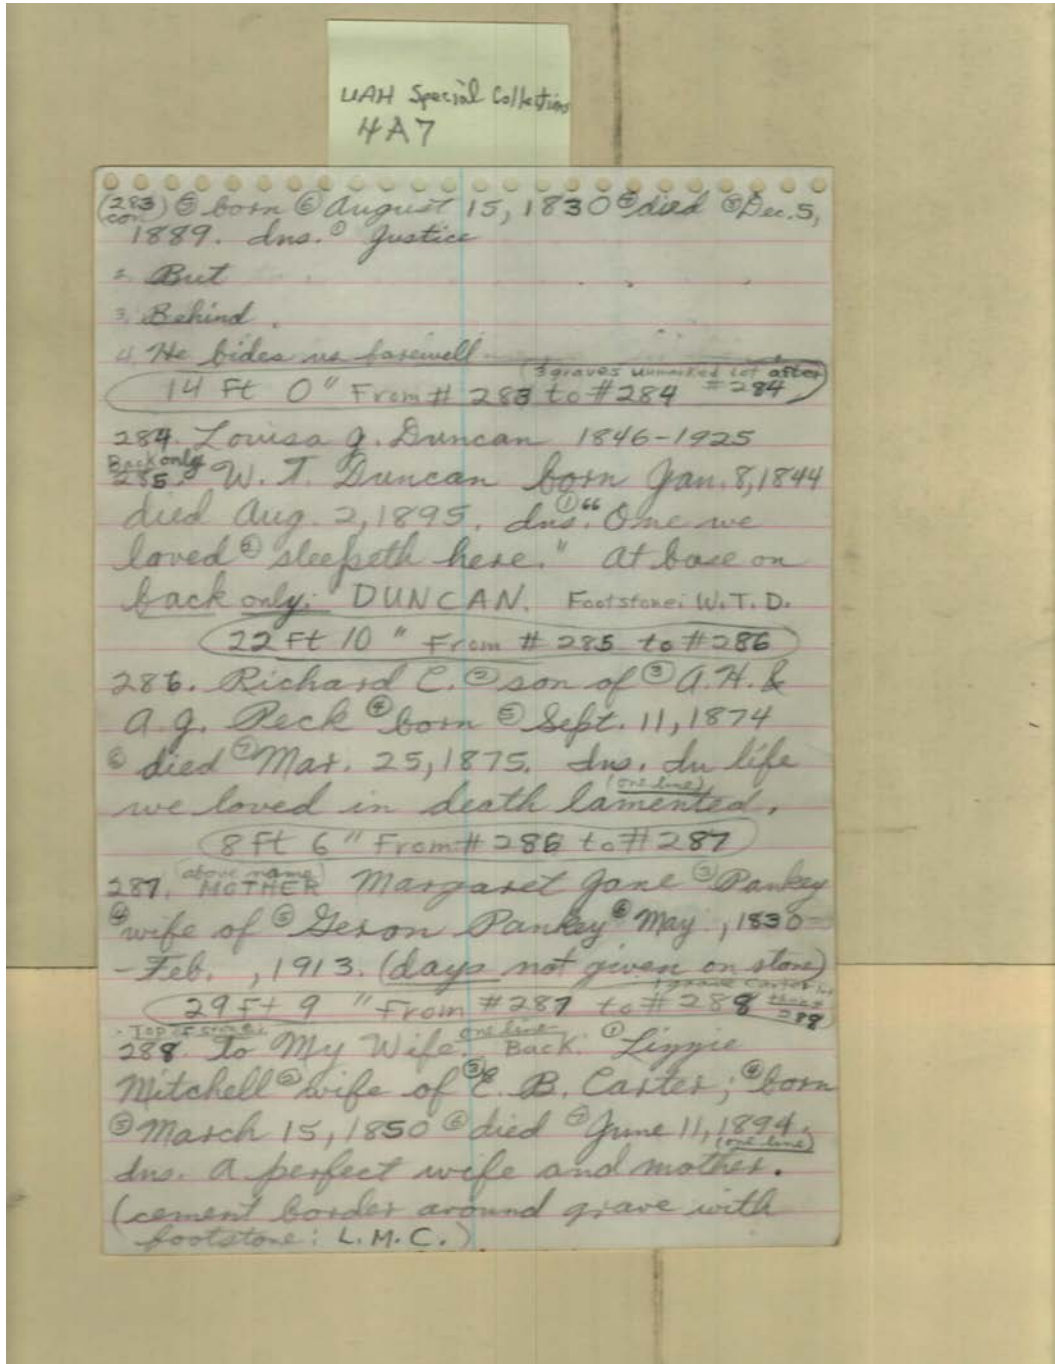 UAH Special Collections
4A7
(283 con) ⑤ born ⑥ August 15, 1830 ⑦ died ⑧ Dec. 5,
1889. Ins. ① Justice
2. But
3. Behind.
4. He bides us farewell
(3 graves unmarked lot after #284)
14 Ft 0" From # 283 to #284
284. Louisa J. Duncan 1846-1925
Back only
285. W. T. Duncan born Jan. 8, 1844
died Aug. 2, 1895. Ins. ① "One we
loved ② sleepeth here." At base on
back only: DUNCAN. Footstone: W.T.D.
22 Ft 10" From # 285 to #286
286. Richard C. ② son of ③ A.H. &
A.G. Peck ④ born ⑤ Sept. 11, 1874
⑥ died ⑦ Mar. 25, 1875. Ins. In life
(one line)
we loved in death lamented.
8 Ft 6" From # 286 to #287
(above name)
287. MOTHER Margaret Jane ③ Pankey
④ wife of ⑤ Geron Pankey ⑥ May , 1830-
-Feb. , 1913. (days not given on stone)
29 Ft 9" From #287 to #288
Top of stone: one line
288. To My Wife. Back: ① Lizzie
Mitchell ② wife of ③ E. B. Carter; ④ born
⑤ March 15, 1850 ⑥ died ⑦ June 11, 1894.
(one line)
Ins. A perfect wife and mother.
(cement border around grave with
footstone: L.M.C.)